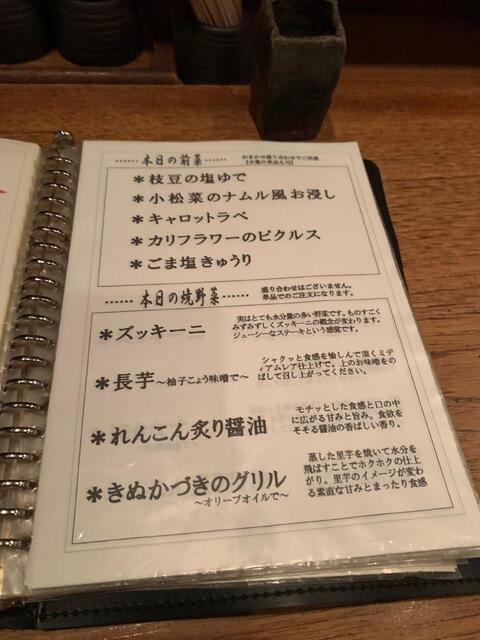 ……本日の前菜……
おまかせ盛り合わせでご用意
【少量の単品も可】
＊枝豆の塩ゆで
＊小松菜のナムル風お浸し
＊キャロットラペ
＊カリフラワーのピクルス
＊ごま塩きゅうり
……本日の焼野菜……
盛り合わせはございません。
単品でのご注文になります。
＊ズッキーニ
実はとても水分量の多い野菜です。ものすごく
みずみずしくズッキーニの概念が変わります。
ジューシーなステーキという感覚です。
＊長芋～柚子こょう味噌で～
シャクッと食感を愉しんで頂くミデ
ィアムレア仕上げで。上のお味噌をの
ばして召し上がってください。
＊れんこん炙り醤油
モチッとした食感と口の中
に広がる甘みと旨み。食欲を
そそる醤油の香ばしい香り。
＊きぬかづきのグリル
～オリーブオイルで～
蒸した里芋を焼いて水分を
飛ばすことでホクホクの仕上
がり。里芋のイメージが変わ
る素直な甘みとまったり食感